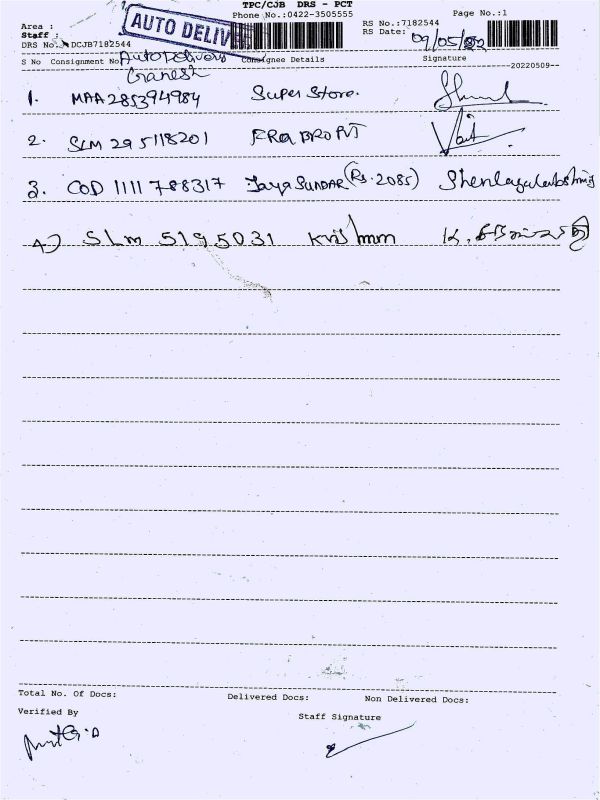 TPC/CJB DRS - PCT
Area : Phone No.:0422-3505555 Page No.:1
Staff : AUTO DELIV RS No.:7182544
DRS No. DCJB7182544 RS Date: 09/05/22
S No Consignment No Auto Delivery Consignee Details Signature
Ganesh 20220509
1. MAA 285394984 Super Store.
2. SLM 295118201
3. COD 1111 788317 Jaya SUNDAR (Rs. 2085)
4) SLM 5195031
Total No. Of Docs: Delivered Docs: Non Delivered Docs:
Verified By Staff Signature